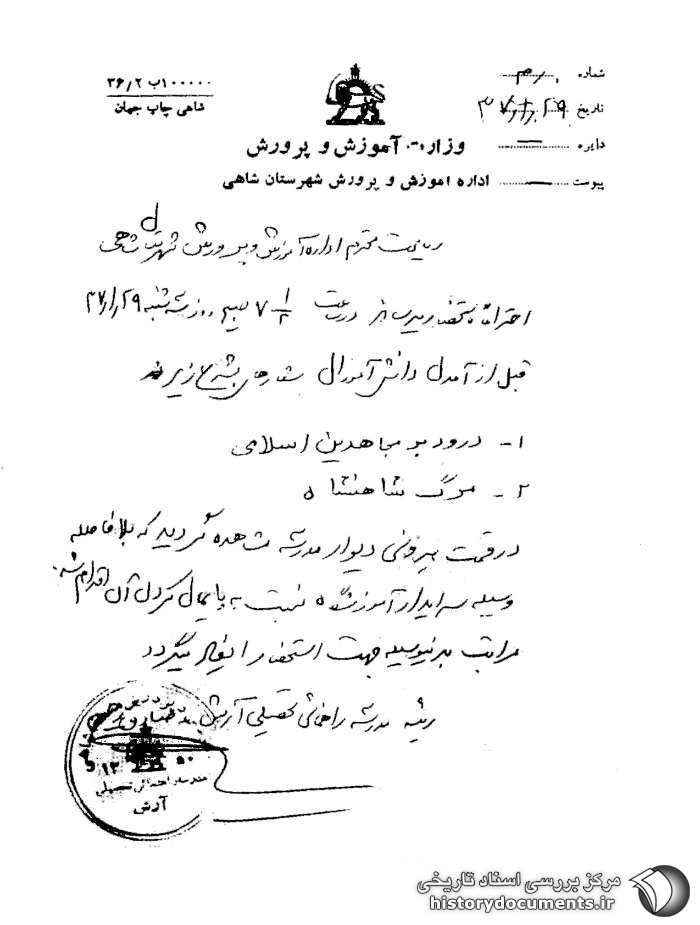 ۱۰۰۰۰۰ب ۳۶/۲
شاهی چاپ جهان
شماره
تاریخ ۳۷/۱/۲۹
دایره
پیوست
وزارت آموزش و پرورش
اداره آموزش و پرورش شهرستان شاهی
ریاست محترم اداره آموزش و پرورش شهرستان شاهی
احتراماً باستحضار میرساند در ساعت ۷ ۱/۲ صبح روز سه شنبه ۳۷/۱/۲۹
قبل از آمدن دانش آموزان شعارهای بشرح زیر
۱- درود بر مجاهدین اسلامی
۲- مرگ شاهنشاه
در قسمت بیرونی دیوار مدرسه مشاهده گردید که بلافاصله
وسیله سرایدار آموزشگاه نسبت به پایمال کردن آن اقدام شد.
مراتب بدینوسیله جهت استحضار ایفاد میگردد
رئیس مدرسه راهنمائی تحصیلی آرش
مدرسه راهنمائی تحصیلی
آرش
مرکز بررسی اسناد تاریخی
historydocuments.ir